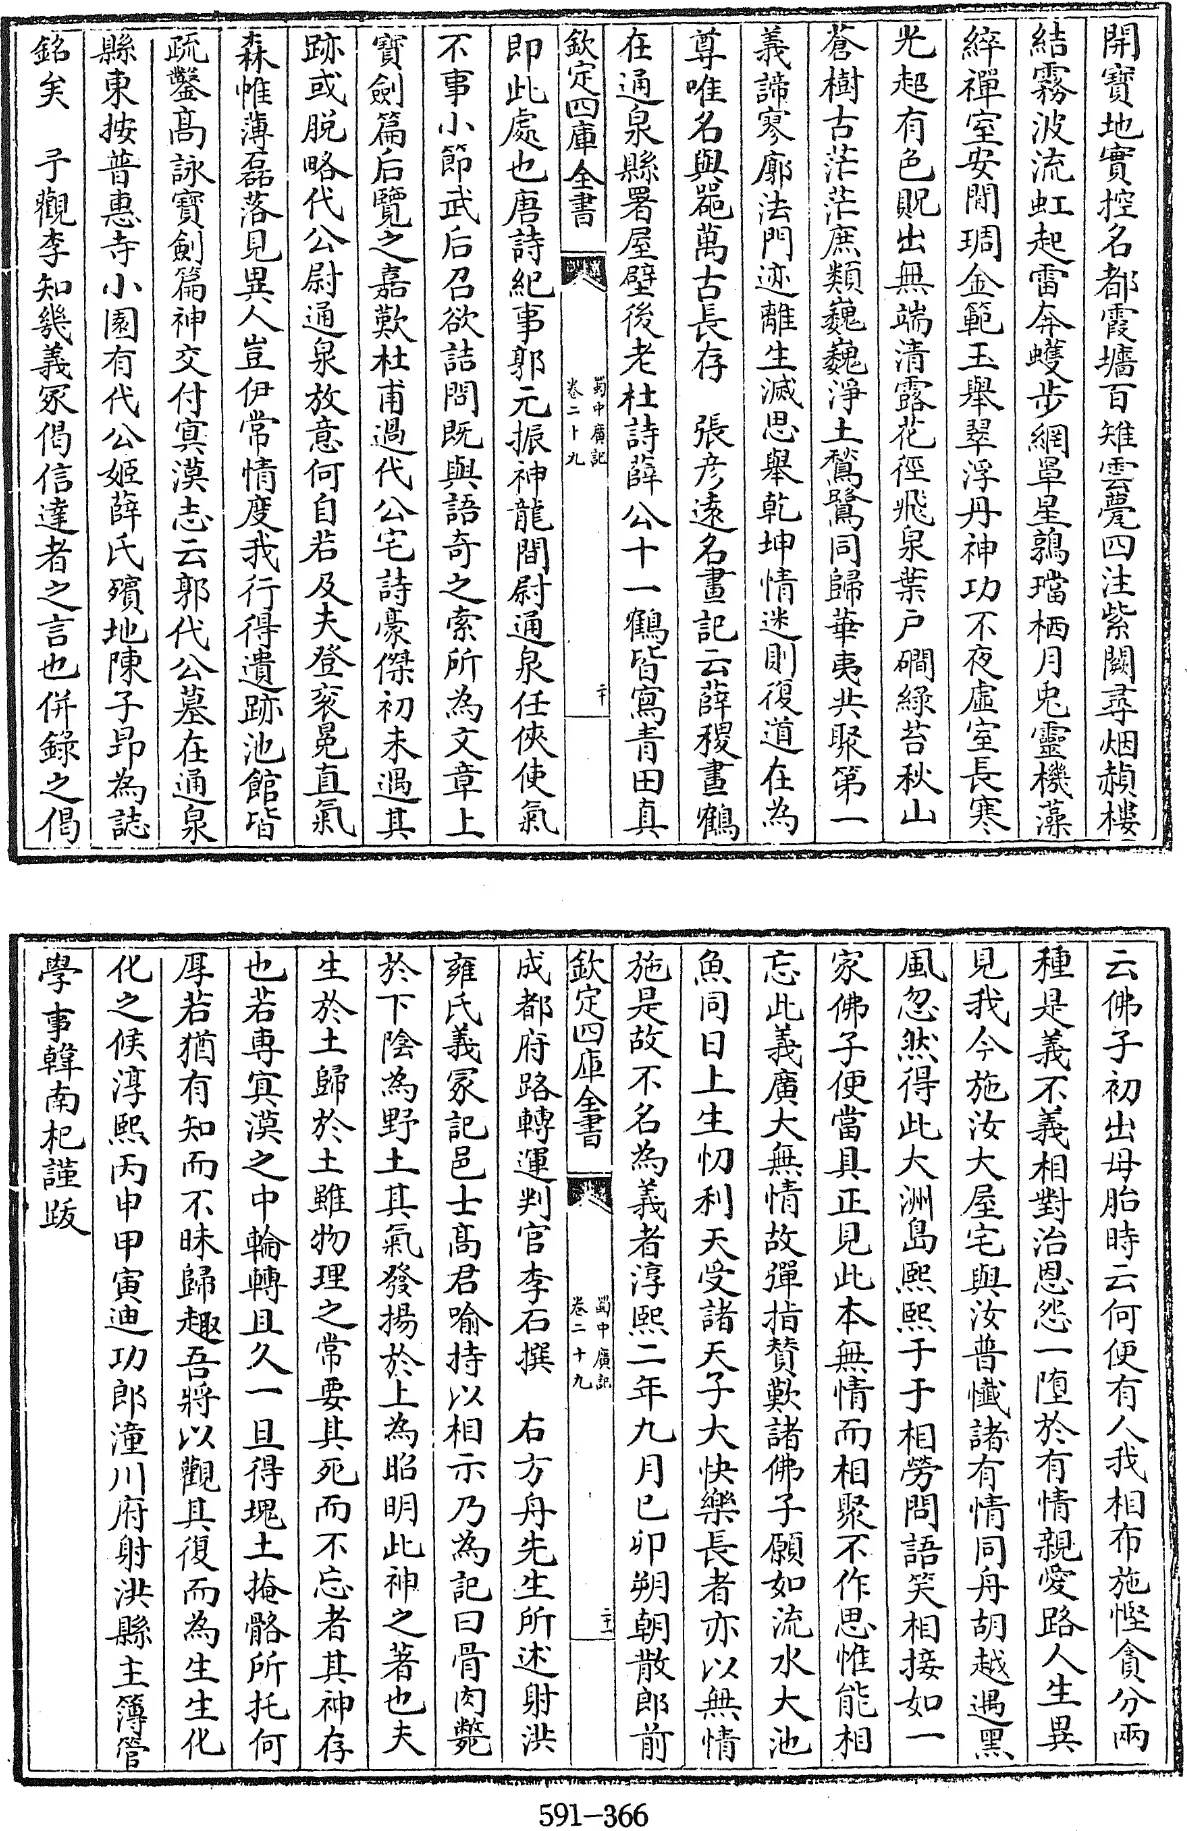 開寶地實控名都霞墻百雉雲甍四注紫闕尋烟赬樓
結霧波流虹起雷奔蠖步網罩星鶉璫栖月兎靈機藻
綷禪室安閒琱金範玉舉翠浮丹神功不夜虚室長寒
光起有色貺出無端清露花徑飛泉葉户磵綠苔秋山
蒼樹古茫茫庶類巍巍淨土鶖鷺同歸華夷共聚第一
義諦寥廓法門迹離生滅思舉乾坤情迷則復道在為
尊唯名與器萬古長存　張彦遠名畫記云薛稷畫鶴
在通泉縣署屋壁後老杜詩薛公十一鶴皆寫青田真
欽定四庫全書
蜀中廣記
卷二十九
二十
即此處也唐詩紀事郭元振神龍間尉通泉任俠使氣
不事小節武后召欲詰問既與語奇之索所為文章上
寶劍篇后覽之嘉歎杜甫過代公宅詩豪傑初未遇其
跡或脱略代公尉通泉放意何自若及夫登衮冕直氣
森帷薄磊落見異人豈伊常情度我行得遺跡池館皆
疏鑿高詠寶劍篇神交付冥漠志云郭代公墓在通泉
縣東按普惠寺小園有代公姬薛氏殯地陳子昻為誌
銘矣　予觀李知幾義冢偈信達者之言也併錄之偈
云佛子初出母胎時云何便有人我相布施慳貪分兩
種是義不義相對治恩怨一墮於有情親愛路人生異
見我今施汝大屋宅與汝普懺諸有情同舟胡越遇黑
風忽然得此大洲島熙熙于于相勞問語笑相接如一
家佛子便當具正見此本無情而相聚不作思惟能相
忘此義廣大無情故彈指贊歎諸佛子願如流水大池
魚同日上生忉利天受諸天子大快樂長者亦以無情
施是故不名為義者淳熙二年九月己卯朔朝散郎前
欽定四庫全書
蜀中廣記
卷二十九
二十一
成都府路轉運判官李石撰　右方舟先生所述射洪
雍氏義冢記邑士髙君喻持以相示乃為記曰骨肉斃
於下陰為野土其氣發揚於上為昭明此神之著也夫
生於土歸於土雖物理之常要其死而不忘者其神存
也若専冥漠之中輪轉且久一旦得塊土掩骼所托何
厚若猶有知而不昧歸趣吾將以觀其復而為生生化
化之候淳熙丙申甲寅迪功郎潼川府射洪縣主簿管
學事韓南杞謹跋
591-366